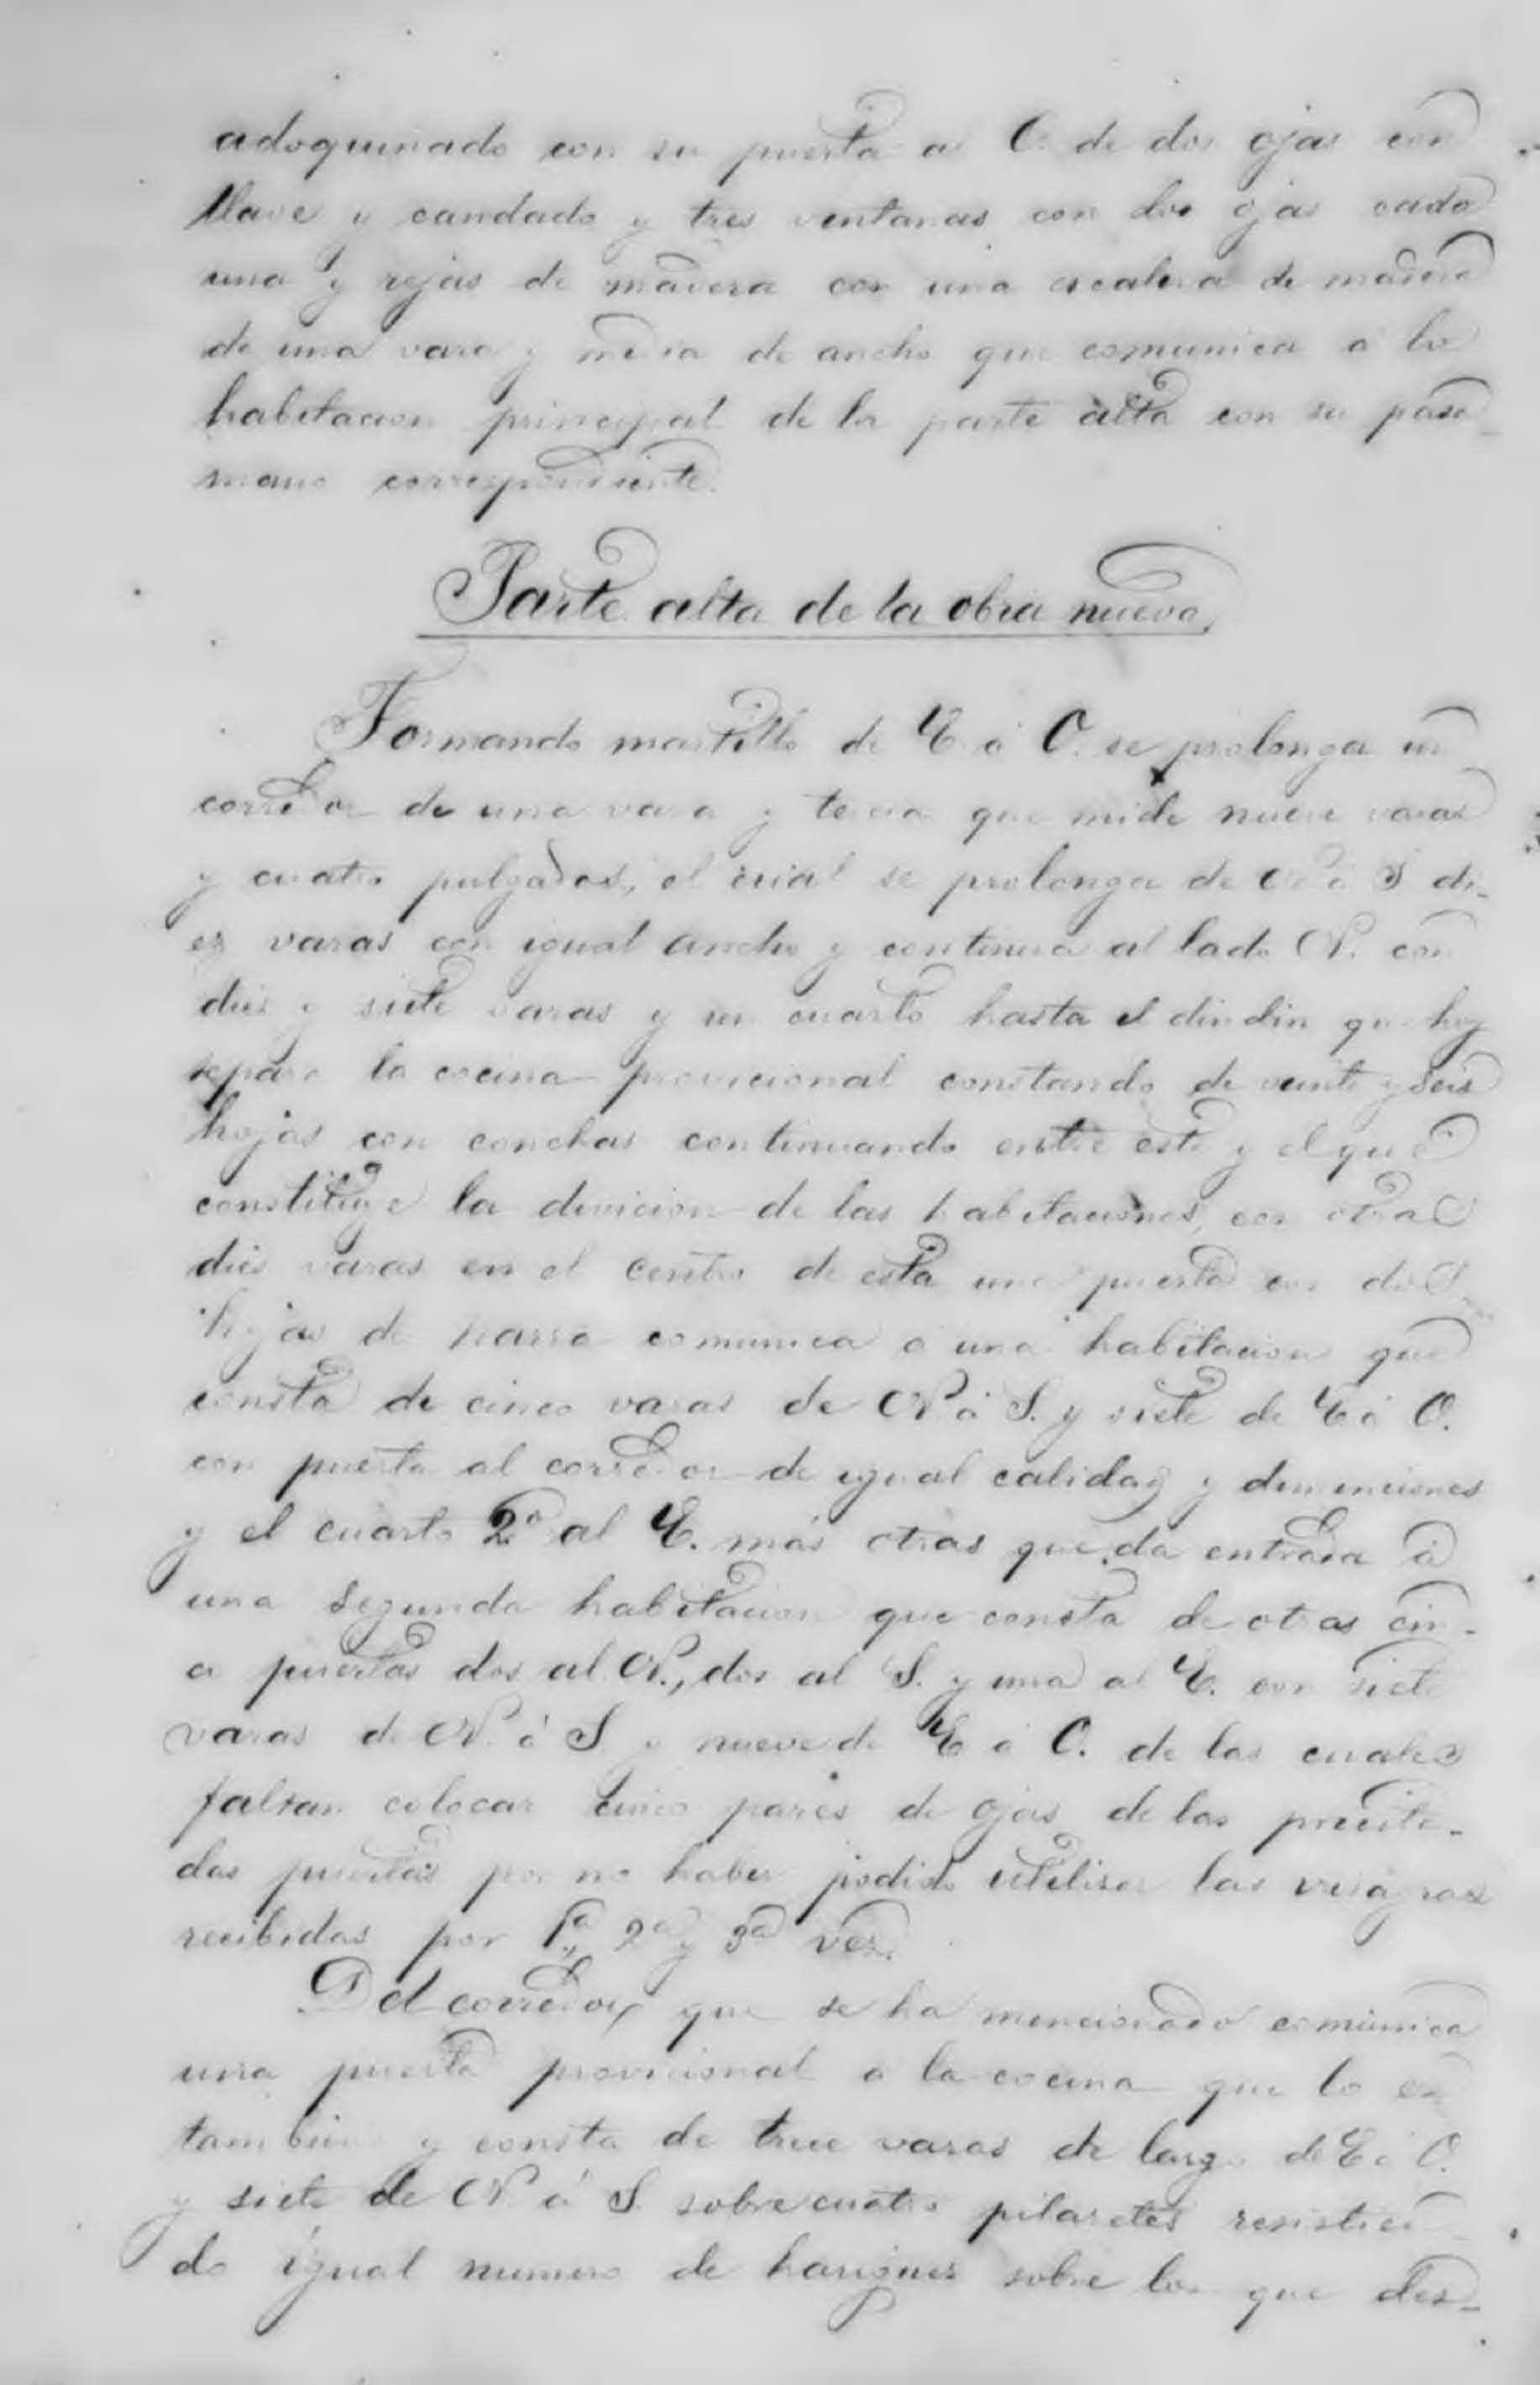 adoquinado con su puerta al O. de dos ojas con
llave y candado y tres ventanas con dos ojas cada
una y rejas de madera con una escalera de madera
de una vara y media de ancho que comunica á la
habitacion principal de la parte alta con su pasa-
mano correspondiente.
Parte alta de la obra nueva.
Formando martillo de E. á O. se prolonga un
corredor de una vara y tercia que mide nueve varas
y cuatro pulgadas, el cual se prolonga de N. á S. di-
ez varas con igual ancho y continua al lado N. con
dies y siete varas y un cuarto hasta el dindin que hoy
separa la cocina provicional constando de veinte y seis
hojas con conchas continuando entre este y el que
constituye la divicion de las habitaciones, con otras
dies varas en el centro de esta una puerta con dos
hojas de narra comunica á una habitacion que
consta de cinco varas de N. á S. y siete de E. á O.
con puerta al corredor de igual calidad y dimenciones
y el cuarto 2º al E. más otras que da entrada á
una segunda habitacion que consta de otras cin-
co puertas dos al N., dos al S. y una al E. con siete
varas de N. á S. y nueve de E. á O. de las cuales
faltan colocar cinco pares de ojas de las precita-
das puertas por no haber podido utilisar las visagras
recibidas por 1ª, 2ª y 3ª vez.
Del corredor que se ha mencionado comunica
una puerta provicional á la cocina que lo es
tambien y consta de trece varas de largo de E. á O.
y siete de N. á S. sobre cuatro pilaretes resistien-
do igual numero de harigues sobre los que des-